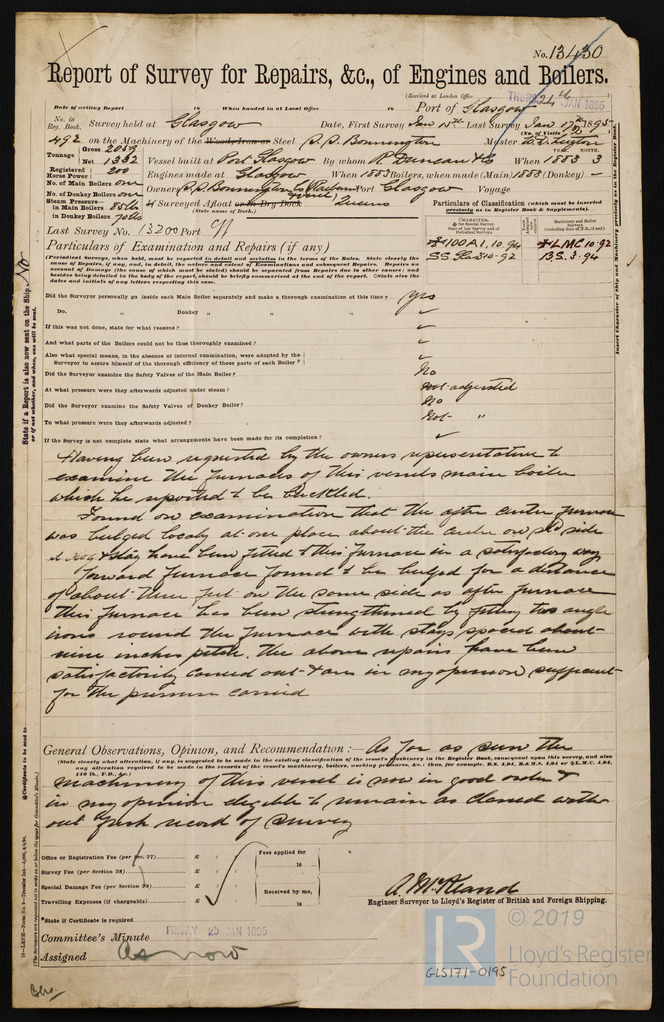 No. 13430
Report of Survey for Repairs, &c., of Engines and Boilers.
(Received at London Office THURS 24th JAN 1895
Date of writing Report 18 When handed in at Local Office 18 Port of Glasgow
No. in Reg. Book. Survey held at Glasgow Date, First Survey Jan 15th Last Survey Jan 17th 1895
(No. of Visits
492 on the Machinery of the Wood, Iron or Steel S.S. Bonnington Master
Tonnage Gross 2089
Net 1332 Vessel built at Port Glasgow By whom R Duncan & Co When 1883 3
YEAR. MONTH.
Registered Horse Power 200 Engines made at Glasgow When 1883 Boilers, when made (Main) 1883 (Donkey) —
No. of Main Boilers one
No. of Donkey Boilers one Owners S.S. Bonnington Co Port Glasgow Voyage
Steam Pressure in Main Boilers 85 lbs
in Donkey Boilers 70 lbs If Surveyed Afloat or in Dry Dock Queens
(State name of Dock.)
Last Survey No. 13200 Port Gls
Particulars of Classification (which must be inserted precisely as in Register Book & Supplements).
CHARACTER.
Machinery and Boiler Survey
100A1. 10.94 LMC 10.92
10-92 B.S. 3.94
Particulars of Examination and Repairs (if any)
(Periodical Surveys, when held, must be reported in detail and seriatim in the terms of the Rules. State clearly the cause of Repairs, if any, and, in detail, the nature and extent of Examinations and subsequent Repairs. Repairs on account of Damage (the cause of which must be stated) should be separated from Repairs due to other causes; and besides being detailed in the body of the report, should be briefly summarised at the end of the report. State also the dates and initials of any letters respecting this case.
Did the Surveyor personally go inside each Main Boiler separately and make a thorough examination at this time? yes
Do. " Donkey " " "
If this was not done, state for what reasons?
And what parts of the Boilers could not be thus thoroughly examined?
Also what special means, in the absence of internal examination, were adopted by the Surveyor to assure himself of the thorough efficiency of those parts of each Boiler?
Did the Surveyor examine the Safety Valves of the Main Boiler? No
At what pressure were they afterwards adjusted under steam? not adjusted
Did the Surveyor examine the Safety Valves of Donkey Boiler? No
To what pressure were they afterwards adjusted? Not "
If the Survey is not complete state what arrangements have been made for its completion?
Having been requested by the owners representative to
examine the furnaces of this vessels main boiler
which he reported to be buckled.
Found on examination that the after center furnace
was bulged localy at one place about the center on side
& stay have been fitted to this furnace in a satisfactory way
forward furnace found to be bulged for a distance
of about three feet on the same side as after furnace
this furnace has been strengthened by fitting two angle
irons round the furnace with stays spaced about
nine inches pitch. the above repairs have been
satisfactorily carried out & are in my opinion sufficient
for the pressure carried
General Observations, Opinion, and Recommendation:— As far as seen the
(State clearly what alteration, if any, is suggested to be made in the existing classification of the vessel's machinery in the Register Book, consequent upon this survey, and also any alteration required to be made in the records of machinery, boilers, working pressures, &c.; thus, for example, B.S. 4,94, B.&M.S. 4,94 or L.M.C. 4,94, 140 lb., F.D., &c.)
machinery of this vessel is now in good order &
in my opinion eligible to remain as classed with-
out fresh record of survey
Office or Registration Fee (per Sec. 27) £
Survey Fee (per Section 28) £
Special Damage Fee (per Section 28) £
Travelling Expenses (if chargeable) £
Fees applied for
18
Received by me,
18
Engineer Surveyor to Lloyd's Register of British and Foreign Shipping.
*State if Certificate is required
Committee's Minute FRIDAY 25 JAN 1895
Assigned As now
© 2019
LR
Lloyd's Register
Foundation
GLS171-0195
State if a Report is also now sent on the Ship, or if not whether, and when, one will be sent. No
Insert Character of Ship and Machinery precisely as in the Register Book.